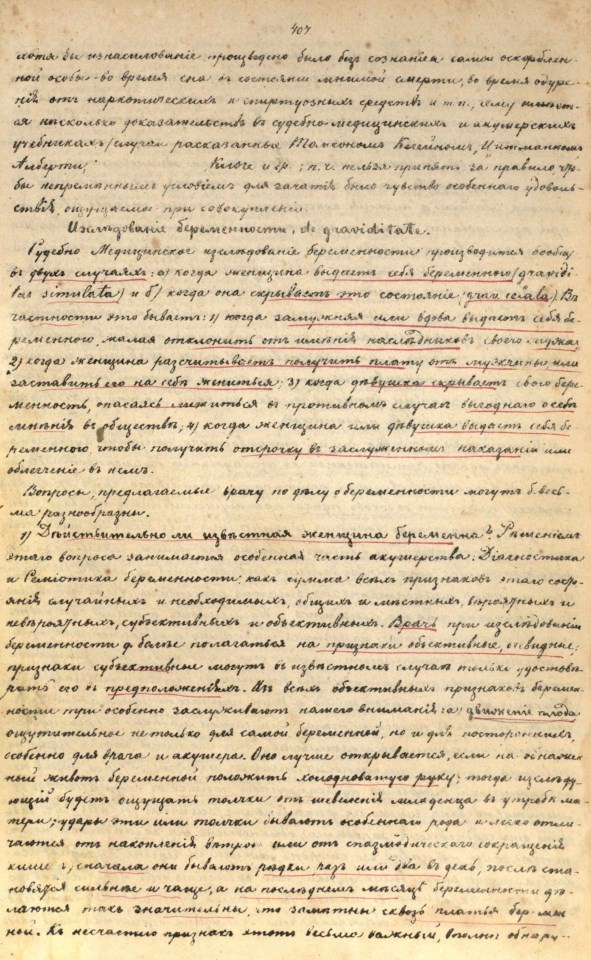 407
хотя бы изнасилованіе произведено было безъ сознанія самой оскорблен-
ной особы во время сна въ состояніи мнимой смерти, во время одуре-
нія отъ наркотическихъ и спиртуозныхъ средствъ и т.п., чему имѣет-
ся нѣсколько доказательствъ въ судебно-медицинскихъ и акушерскихъ
учебникахъ (случаи расказанныя
Алберти, Клюге и др.; п.ч. нельзя принять за правило, что-
бы непремѣннымъ условіемъ для зачатія было чувство особеннаго удоволь-
ствія, ощущаемое при совокупленіи.
Изслѣдованіе беременности, de graviditate.
Судебно Медицинское изслѣдованіе беременности производится вообще
въ двухъ случаяхъ: а) когда женщина выдаетъ себя беременною (gravidi
tas simulata) и б) когда она скрываетъ это состояніе (grav. celata). Въ
частности это бываетъ: 1) когда замужняя или вдова выдаетъ себя бе-
ременною, желая отклонить отъ имѣнія наслѣдниковъ своего мужа;
2) когда женщина разсчитываетъ получить плату отъ мужчины, или
заставить его на себѣ жениться; 3) когда дѣвушка скрываетъ свою бере-
менность, опасаясь лишиться въ противномъ случаѣ выгоднаго о себѣ
мнѣнія въ обществѣ; 4) когда женщина или дѣвушка выдаетъ себя бе-
ременною, чтобы получить отсрочку въ заслуженномъ наказаніи или
облегченіе въ немъ.
Вопросы, предлагаемые врачу по дѣлу о беременности могутъ б. весь-
ма разнообразны.
1) Дѣйствительно ли извѣстная женщина беременна? Рѣшеніемъ
этаго вопроса занимается особенная часть акушерства: Діагностика
и Семіотика беременности, какъ сумма всѣхъ признаковъ этаго состо-
янія случайныхъ и необходимыхъ, общихъ и мѣстныхъ, вѣроятныхъ и
невѣроятныхъ, субъективныхъ и объективныхъ. Врачъ при изслѣдованіи
беременности д. болѣе полагаться на признаки объективные, очевидные;
признаки субъективные могутъ въ извѣстномъ случаѣ только удостовѣ-
рять его въ предположеніяхъ. Изъ всѣхъ объективныхъ признаковъ беремен-
ности три особенно заслуживаютъ нашего вниманія: а) движеніе плода
ощутительное не только для самой беременной, но и для постороннихъ,
особенно для врача и акушера. Оно лучше открывается, если на обнажен-
ный животъ беременной положить холодноватую руку; тогда изслѣду-
ющій будетъ ощущать толчки отъ шевеленія младенца въ утробѣ ма-
тери; удары эти или толчки бываютъ особеннаго рода и легко отли-
чаются отъ накопленія вѣтровъ или отъ спазмодическаго сокращенія
кишекъ, сначала они бываютъ рѣдки разъ или два въ день, послѣ ста-
новятся сильнѣе и чаще, а на послѣднемъ мѣсяцѣ беременности дѣ-
лаются такъ значительны, что замѣтны сквозь платья беремен-
ной. Къ несчастію признакъ этотъ весьма важный, вполнѣ обнару-